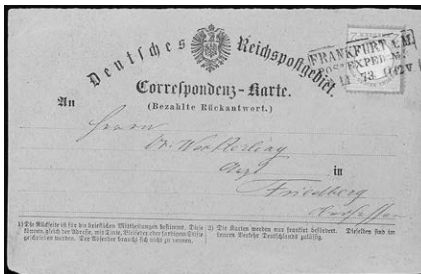 Deutsches Reichspostgebiet.
FRANKFURT A.M.
Correspondenz-Karte.
(Bezahlte Rückantwort.)
An
Herrn
Dr.
in
Friedberg
1) Die Rückseite ist für die brieflichen Mittheilungen bestimmt. Diese
können, gleich der Adresse, mit Tinte, Bleifeder oder farbigem Stifte
geschrieben werden. Der Absender braucht sich nicht zu nennen.
2) Die Karten werden nur frankirt befördert. Dieselben sind im
innern Verkehr Deutschlands zulässig.